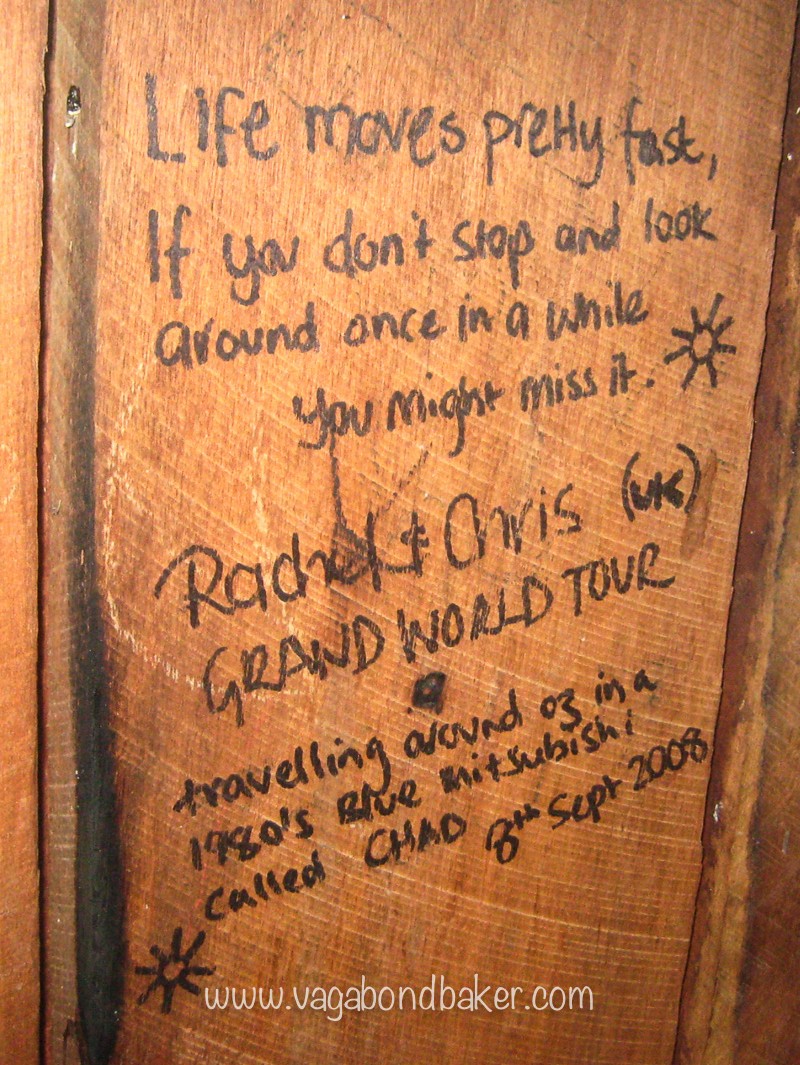 Life moves pretty fast,
If you don't stop and look
around once in a while
you might miss it.
Rachel + Chris (UK)
GRAND WORLD TOUR
travelling around oz in a
1980's Blue mitsubishi
called CHAD 8th Sept 2008
www.vagabondbaker.com